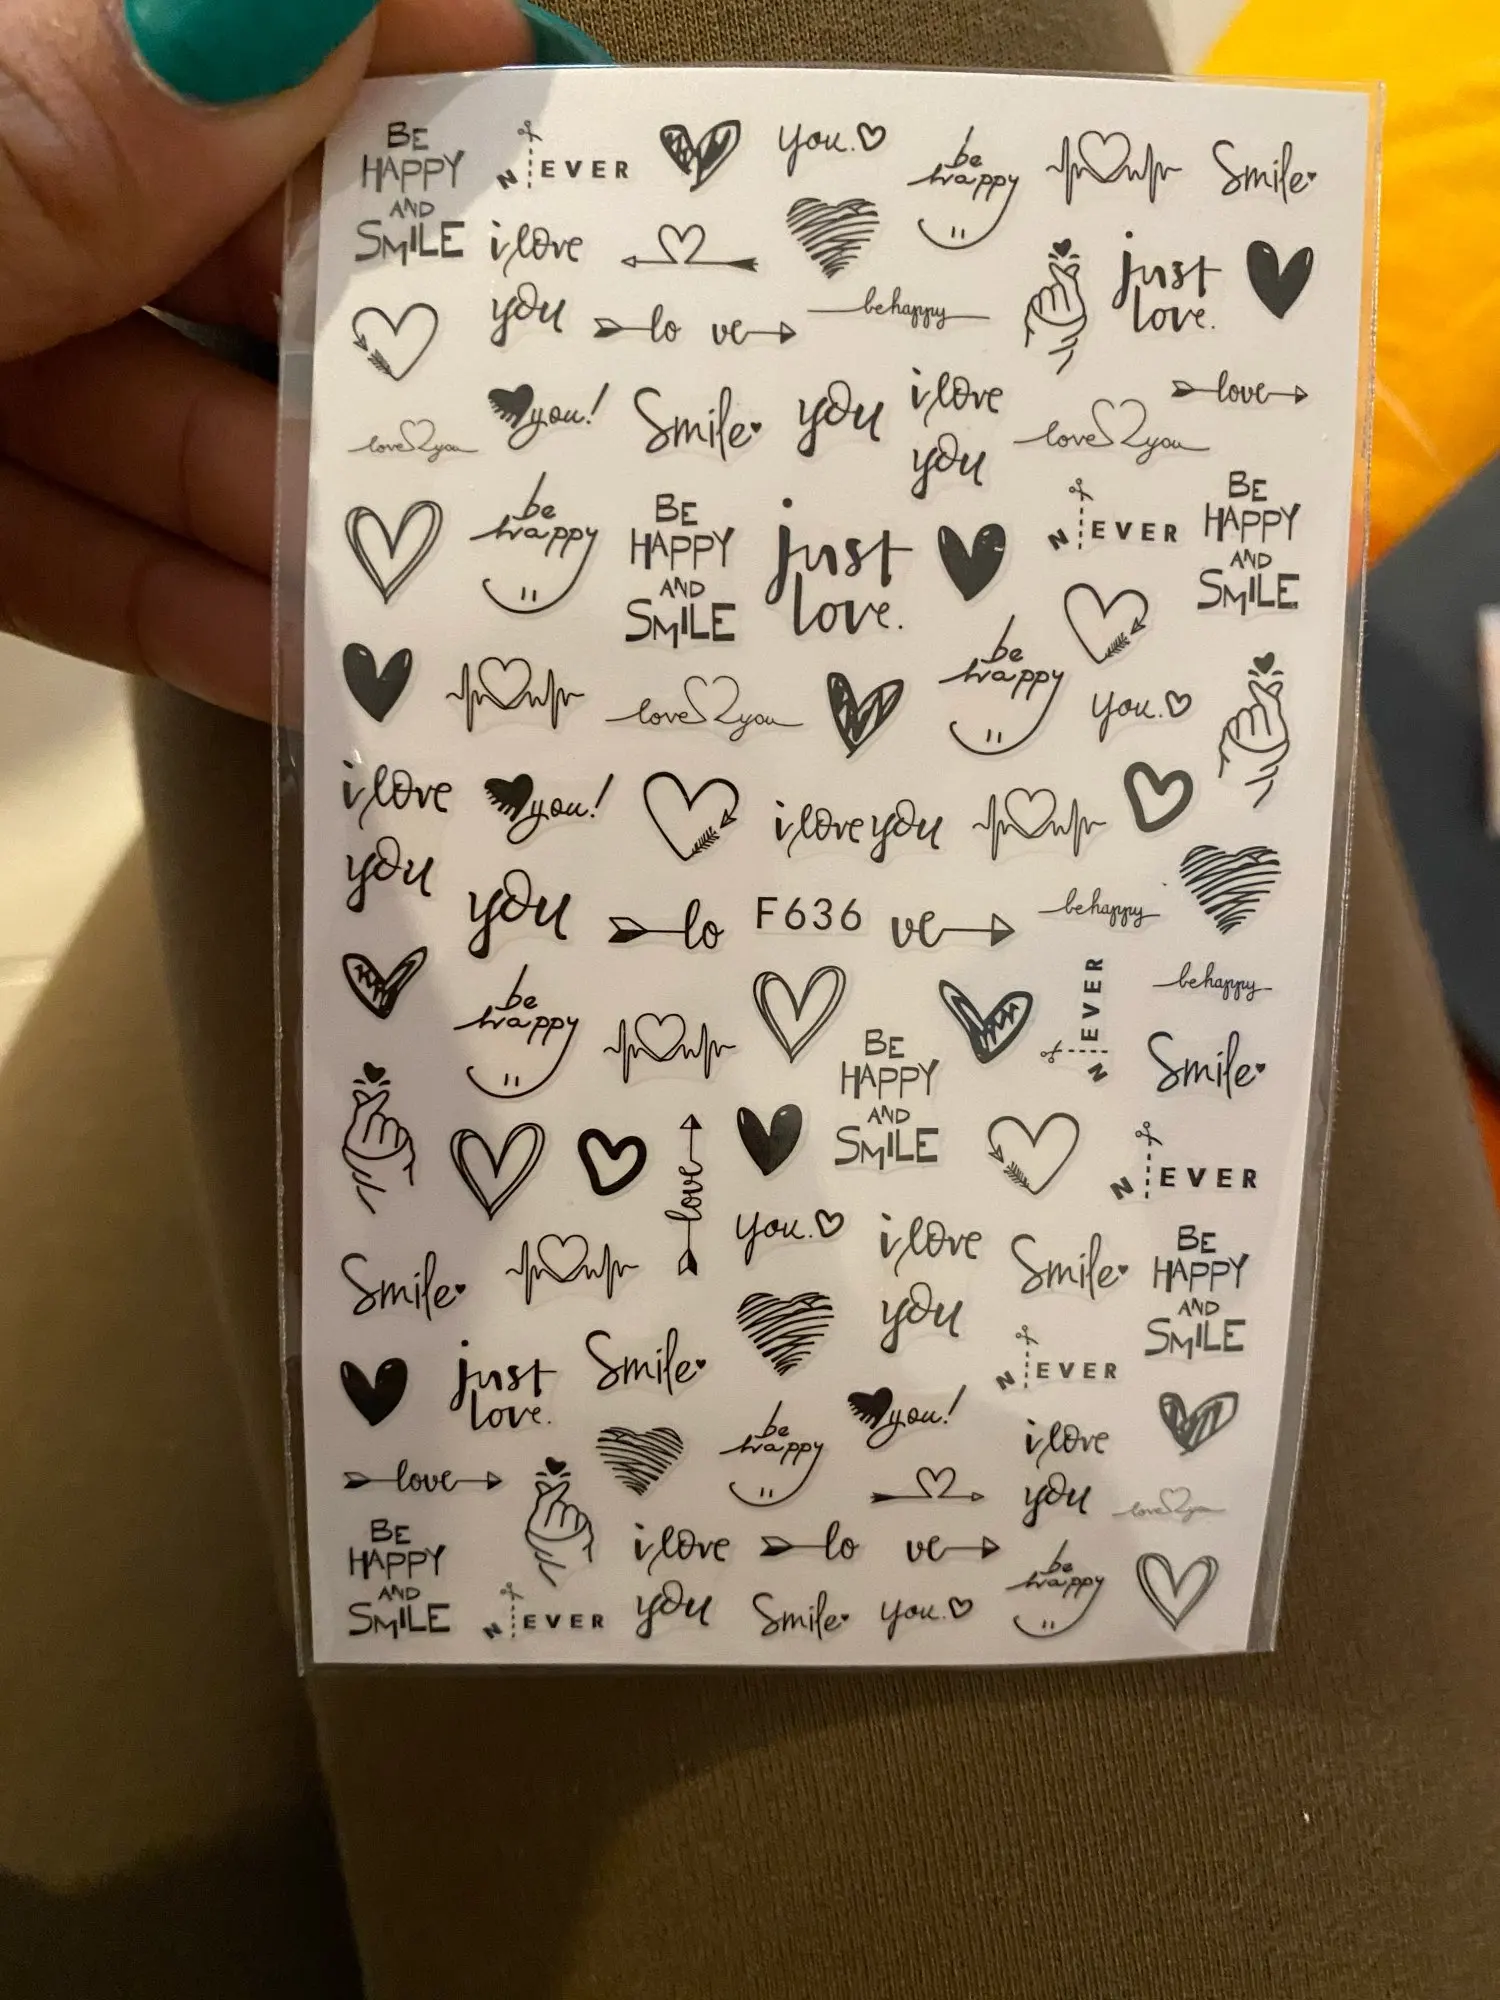 BE
HAPPY
AND
SMILE
NEVER
you.
be
happy
Smile
i love
you
lo ve
be happy
just
love.
you!
Smile
you
i love
you
love
love you
love you
be
happy
BE
HAPPY
AND
SMILE
just
love.
NEVER
BE
HAPPY
AND
SMILE
love you
be
happy
you.
i love
you
you!
i love you
you
lo
F636
ve
be happy
be
happy
BE
HAPPY
AND
SMILE
NEVER
be happy
Smile
love
you.
i love
you
NEVER
Smile
Smile
BE
HAPPY
AND
SMILE
just
love.
Smile
NEVER
love
be
happy
you!
i love
you
love you
BE
HAPPY
AND
SMILE
NEVER
i love
you
lo ve
Smile
you.
be
happy